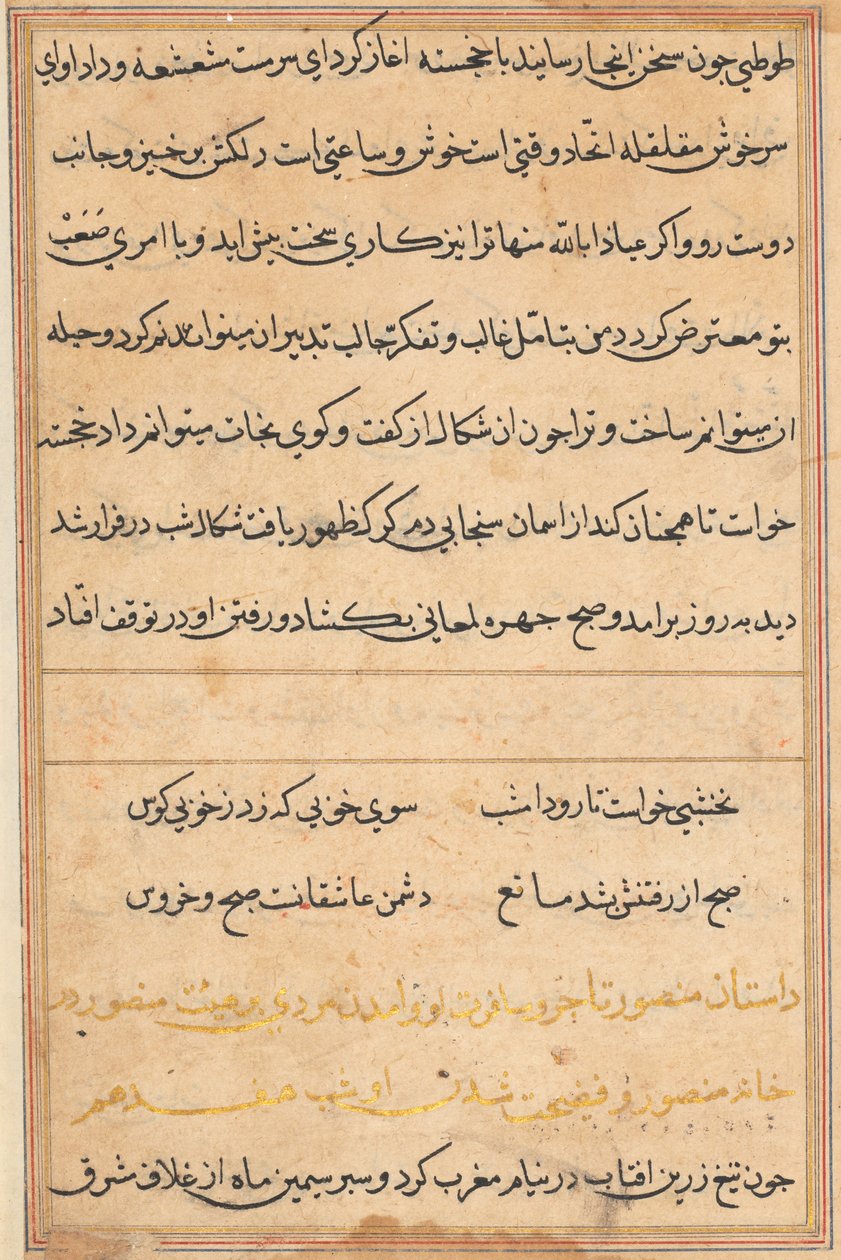 طوطی جون سخن اینجا رسانید با خجسته اغاز کرد ای سرمست مشعشعه وداد اوای
سرخوش مقلقله اتّحاد وقتی است خوش و ساعتی است دلکش برخیز و جانب
دوست رو و اکر عیاذا بالله منها ترا نیز کاری سخت بیش اید و با امری صَعَبْ
بتو معترض کردد من بتامّل غالب و تفکرّ جالب تدبیر ان میتوانم کرد و حیله
ان میتوانم ساخت و ترا جون ان شکال از کفت و کوی نجات میتوانم داد خجسته
خواست تا همجنان کند از اسمان سنجابی دم کرک ظهور یافت شکال شب در فرار شد
دید به روز برامد و صبح جهره لمعانی بکشاد و رفتن او در توقف افتاد
نخشبی خواست تا رود امشب سوی خوبی که زد ز خوبی کوس
صبح از رفتنش بشد مانع دشمن عاشقانت صبح و خروس
داستان منصور تاجر و مسافرت او و امدن مردی بر هیئت منصور در
خانه منصور و فضیحت شدن او شب هفدهم
جون تیغ زرین افتاب در نیام مغرب کرد و سبر سیمین ماه از غلاف شرق